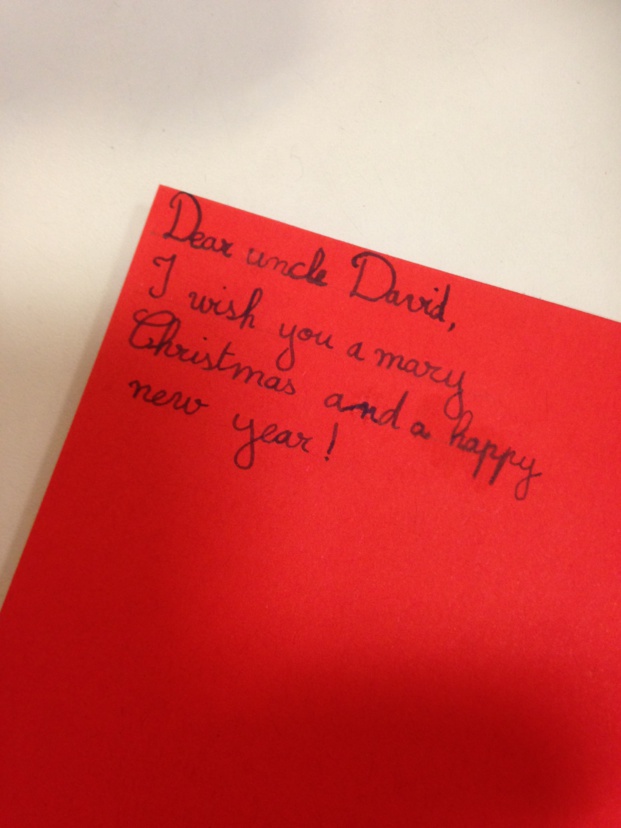 Dear uncle David,
I wish you a mary
Christmas and a happy
new year!